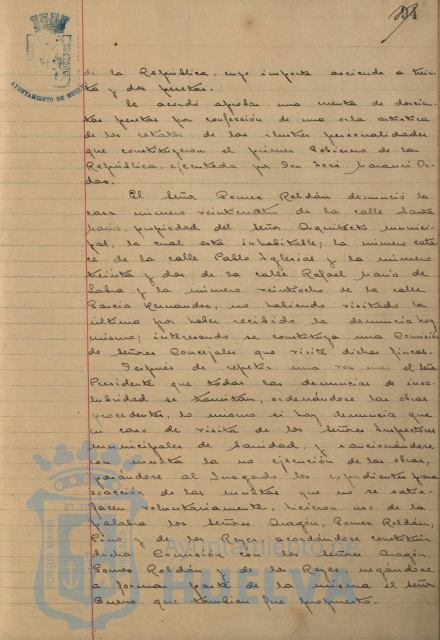 AYUNTAMIENTO DE HUELVA
de la República, cuyo importe asciende a trein-
ta y dos pesetas.
Se acordó aprobar una cuenta de doscien-
tas pesetas por confección de una orla artística
de los retratos de las ilustres personalidades
que constituyeron el primer Gobierno de la
República, ejecutada por Don José
El Señor Gomez Roldán denunció la
casa número veinticuatro de la calle Santa
María, propiedad del Señor Arquitecto munici-
pal, la cual está inhabitable; la número cator-
ce de la calle Pablo Iglesias y la número
treinta y dos de la calle Rafael María de
Labra y la número veintiocho de la calle
García Hernandez, no habiendo visitado la
última por haber recibido la denuncia hoy
mismo; interesando se constituya una Comisión
de Señores Concejales que visite dichas fincas.
Después de repetir una vez mas el Señor
Presidente que todas las denuncias de insa-
lubridad se tramitan, ordenándose las obras
procedentes, lo mismo si hay denuncia que
en caso de visita de los Señores Inspectores
municipales de Sanidad, y sancionándose
con multa la no ejecución de las obras,
pasándose al Juzgado los expedientes para
exacción de las multas que no se satis-
facen voluntariamente, hicieron uso de la
palabra los Señores Aragón, Gomez Roldán,
Pino y de los Reyes acordándose constituir
dicha Comisión los Señores Aragón,
Gomez Roldán y de los Reyes negándose
a formar parte de la misma el Señor
Bueno que tambien fue propuesto.
Ayuntamiento
HUELVA